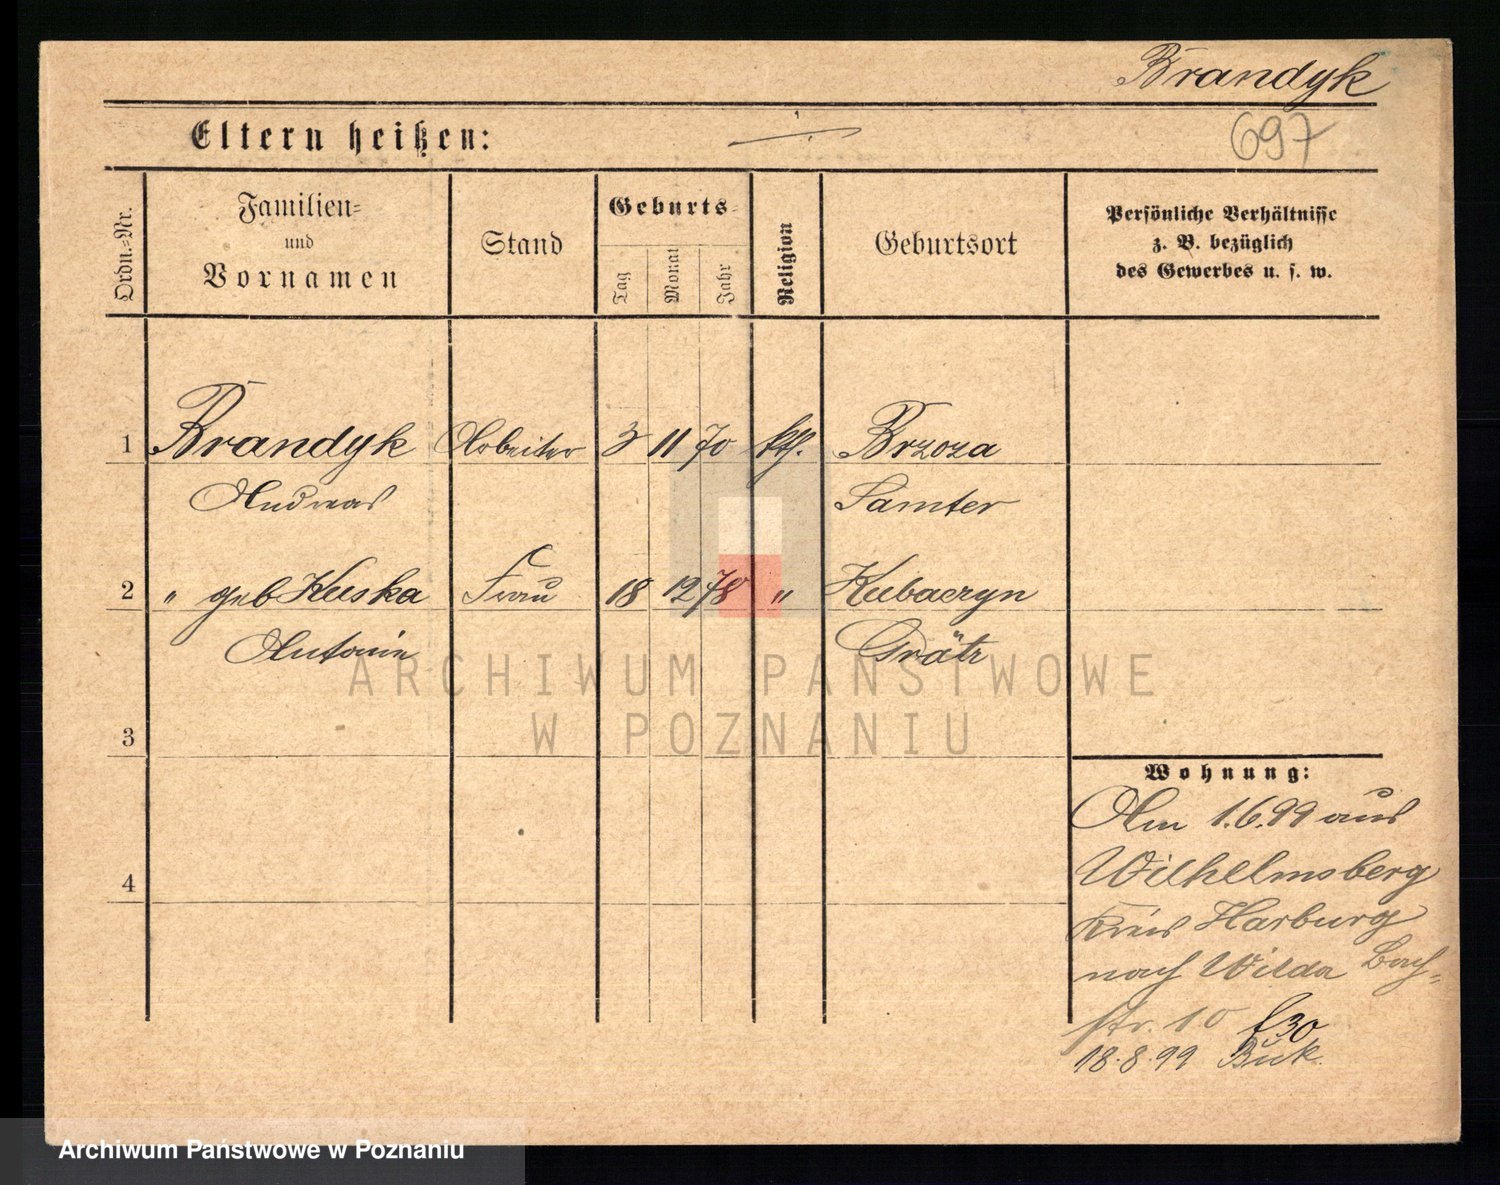 Brandyk
Eltern heißen:
697
Ordn.=Nr.
Familien=
und
Vornamen
Stand
Geburts-
Tag
Monat
Jahr
Religion
Geburtsort
Persönliche Verhältnisse
z. B. bezüglich
des Gewerbes u. s. w.
1 Brandyk Arbeiter 3 11 70 kth. Brzoza
Andreas Samter
2 " geb Kuska Frau 18 12 78 " Kubaczyn
Antonie Grätz
3
4
Wohnung:
Am 1.6.99 aus
Wilhelmsberg
Kreis Harburg
nach Wilda Bach=
str. 10 30
18.8.99 Buk.
ARCHIWUM PAŃSTWOWE
W POZNANIU
Archiwum Państwowe w Poznaniu